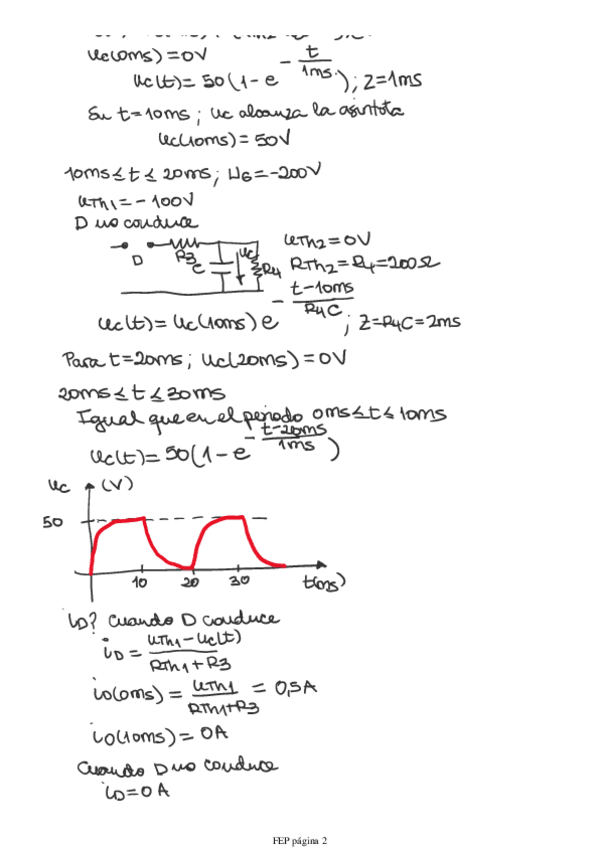 uc(0ms)=0V
uc(t)= 50(1-e^-t/1ms); Z=1ms
En t=10ms; uc alcanza la asíntota
uc(10ms)= 50V
10ms≤t≤20ms; UG=-200V
uTh1=-100V
D no conduce
D R3 C uc R4
uTh2=0V
RTh2=R4=200Ω
uc(t)= uc(10ms) e^-(t-10ms)/R4C; Z=R4C=2ms
Para t=20ms; uc(20ms)=0V
20ms≤t≤30ms
Igual que en el periodo 0ms≤t≤10ms
uc(t)= 50(1-e^-(t-20ms)/1ms)
uc (V)
50
10 20 30 t(ms)
iD? Cuando D conduce
iD= (uTh1-uc(t))/(RTh1+R3)
iD(0ms)= uTh1/(RTh1+R3) = 0,5A
iD(10ms)= 0A
Cuando D no conduce
iD=0A
FEP página 2